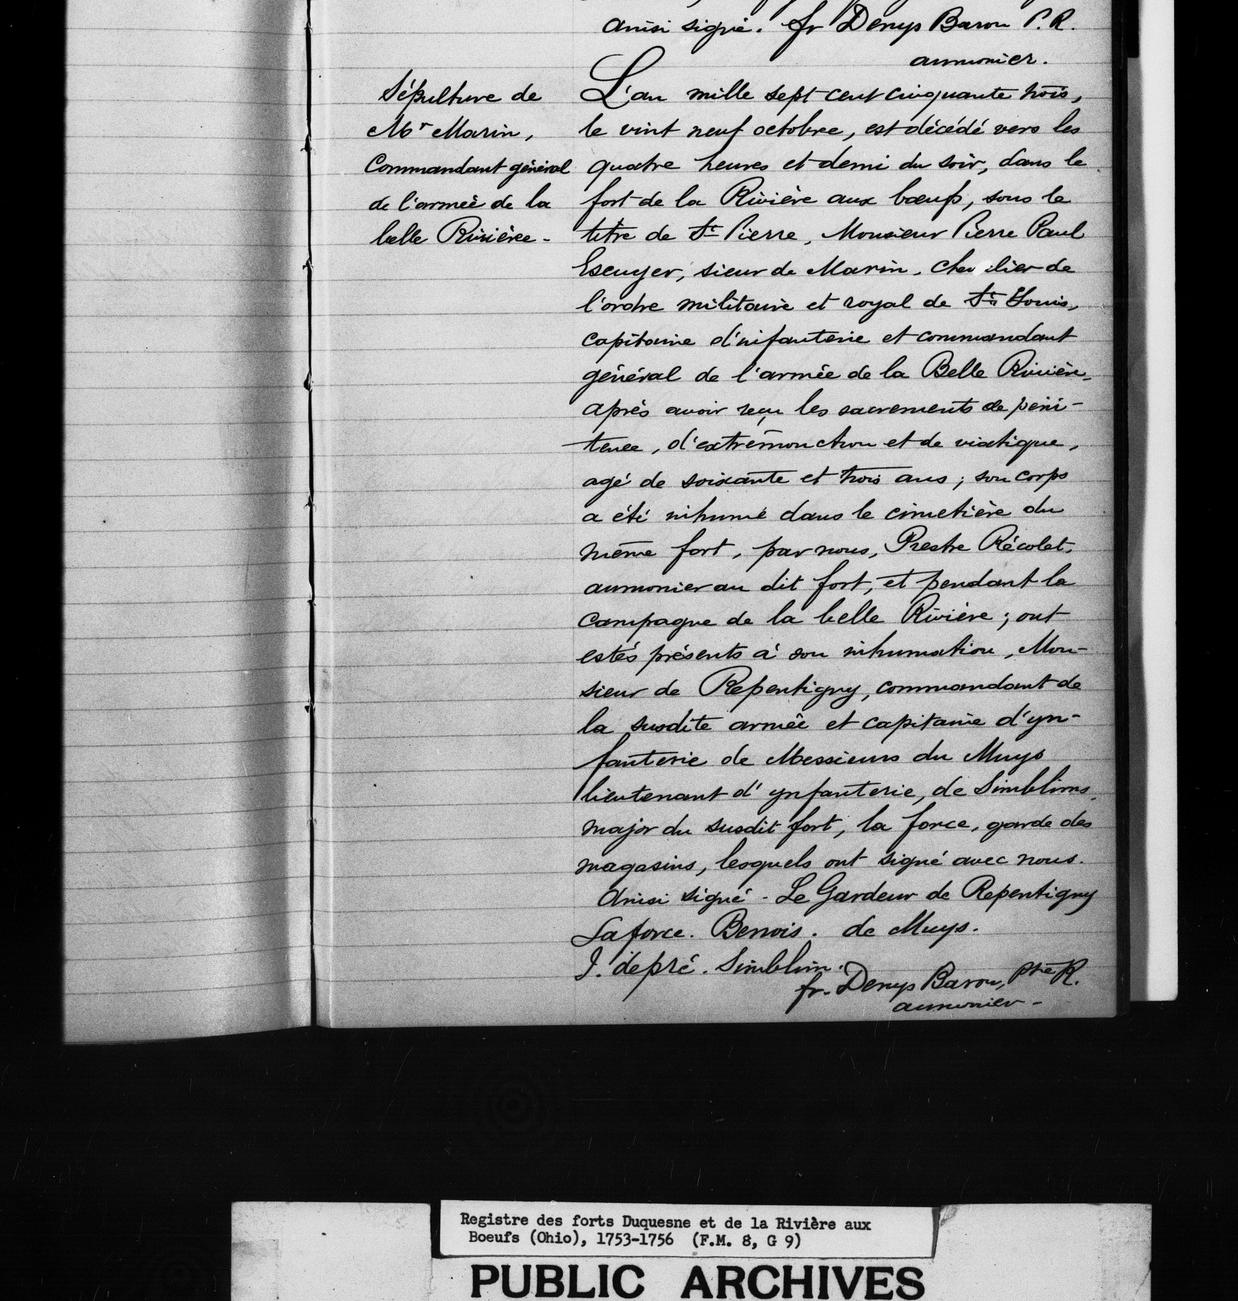 ainsi signé. fr Denys Baron P. R.
aumonier.
Sépulture de
Mr Marin,
Commandant général
de l'armée de la
belle Rivière -
L'an mille sept cent cinquante trois,
le vint neuf octobre, est décédé vers les
quatre heures et demi du soir, dans le
fort de la Rivière aux bœufs, sous le
titre de St Pierre, Monsieur Pierre Paul
Escuyer, sieur de Marin, chevalier de
l'ordre militaire et royal de St Louis,
capitaine d'infanterie et commandant
général de l'armée de la Belle Rivière,
après avoir reçu les sacrements de péni-
tence, d'extrémonction et de viatique,
agé de soixante et trois ans ; son corps
a été inhumé dans le cimetière du
même fort, par nous, Prestre Récolet,
aumonier au dit fort, et pendant la
campagne de la belle Rivière ; ont
estés présents à son inhumation, Mon-
sieur de Repentigny, commandant de
la susdite armée et capitaine d'yn-
fanterie de Messieurs du Muys
lieutenant d'ynfanterie, de Simblims,
major du susdit fort, la force, garde des
magasins, lesquels ont signé avec nous.
Ainsi signé - Le Gardeur de Repentigny
Laforce. Benois. de Muys.
J. depré. Simblim.
fr. Denys Baron, ptre R.
aumonier -
Registre des forts Duquesne et de la Rivière aux
Boeufs (Ohio), 1753-1756 (F.M. 8, G 9)
PUBLIC ARCHIVES